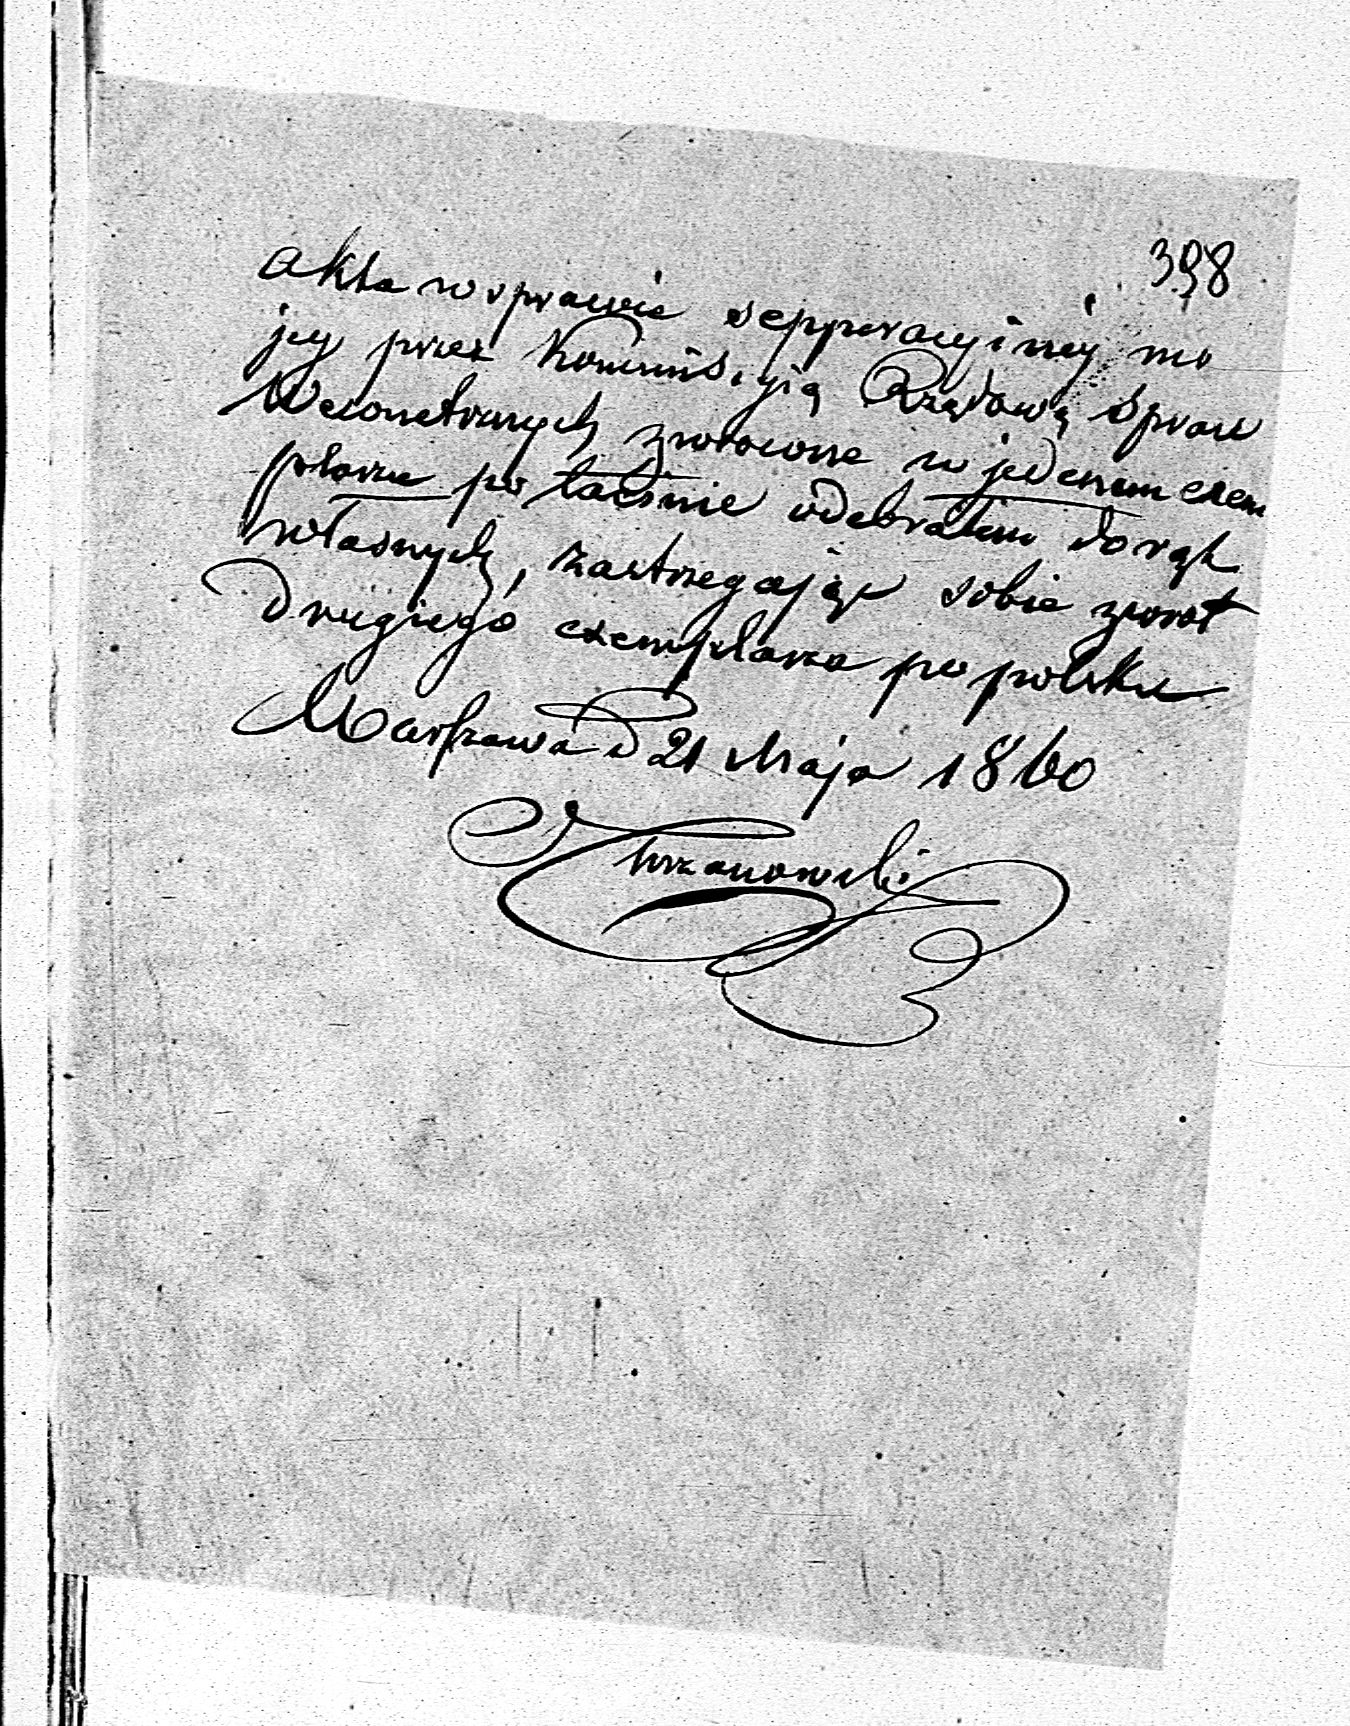 398
akta w sprawie sepperacyinéj mo
jey przez Kommissyią Rządową Spraw
Wewnetrznych zwrocone w jednem exem
plarzu po łacinie odebrałem do rąk
własnych, zastrzegając sobie zwrot
Drugiego exemplarza po polsku
Warszawa d 21 Maja 1860